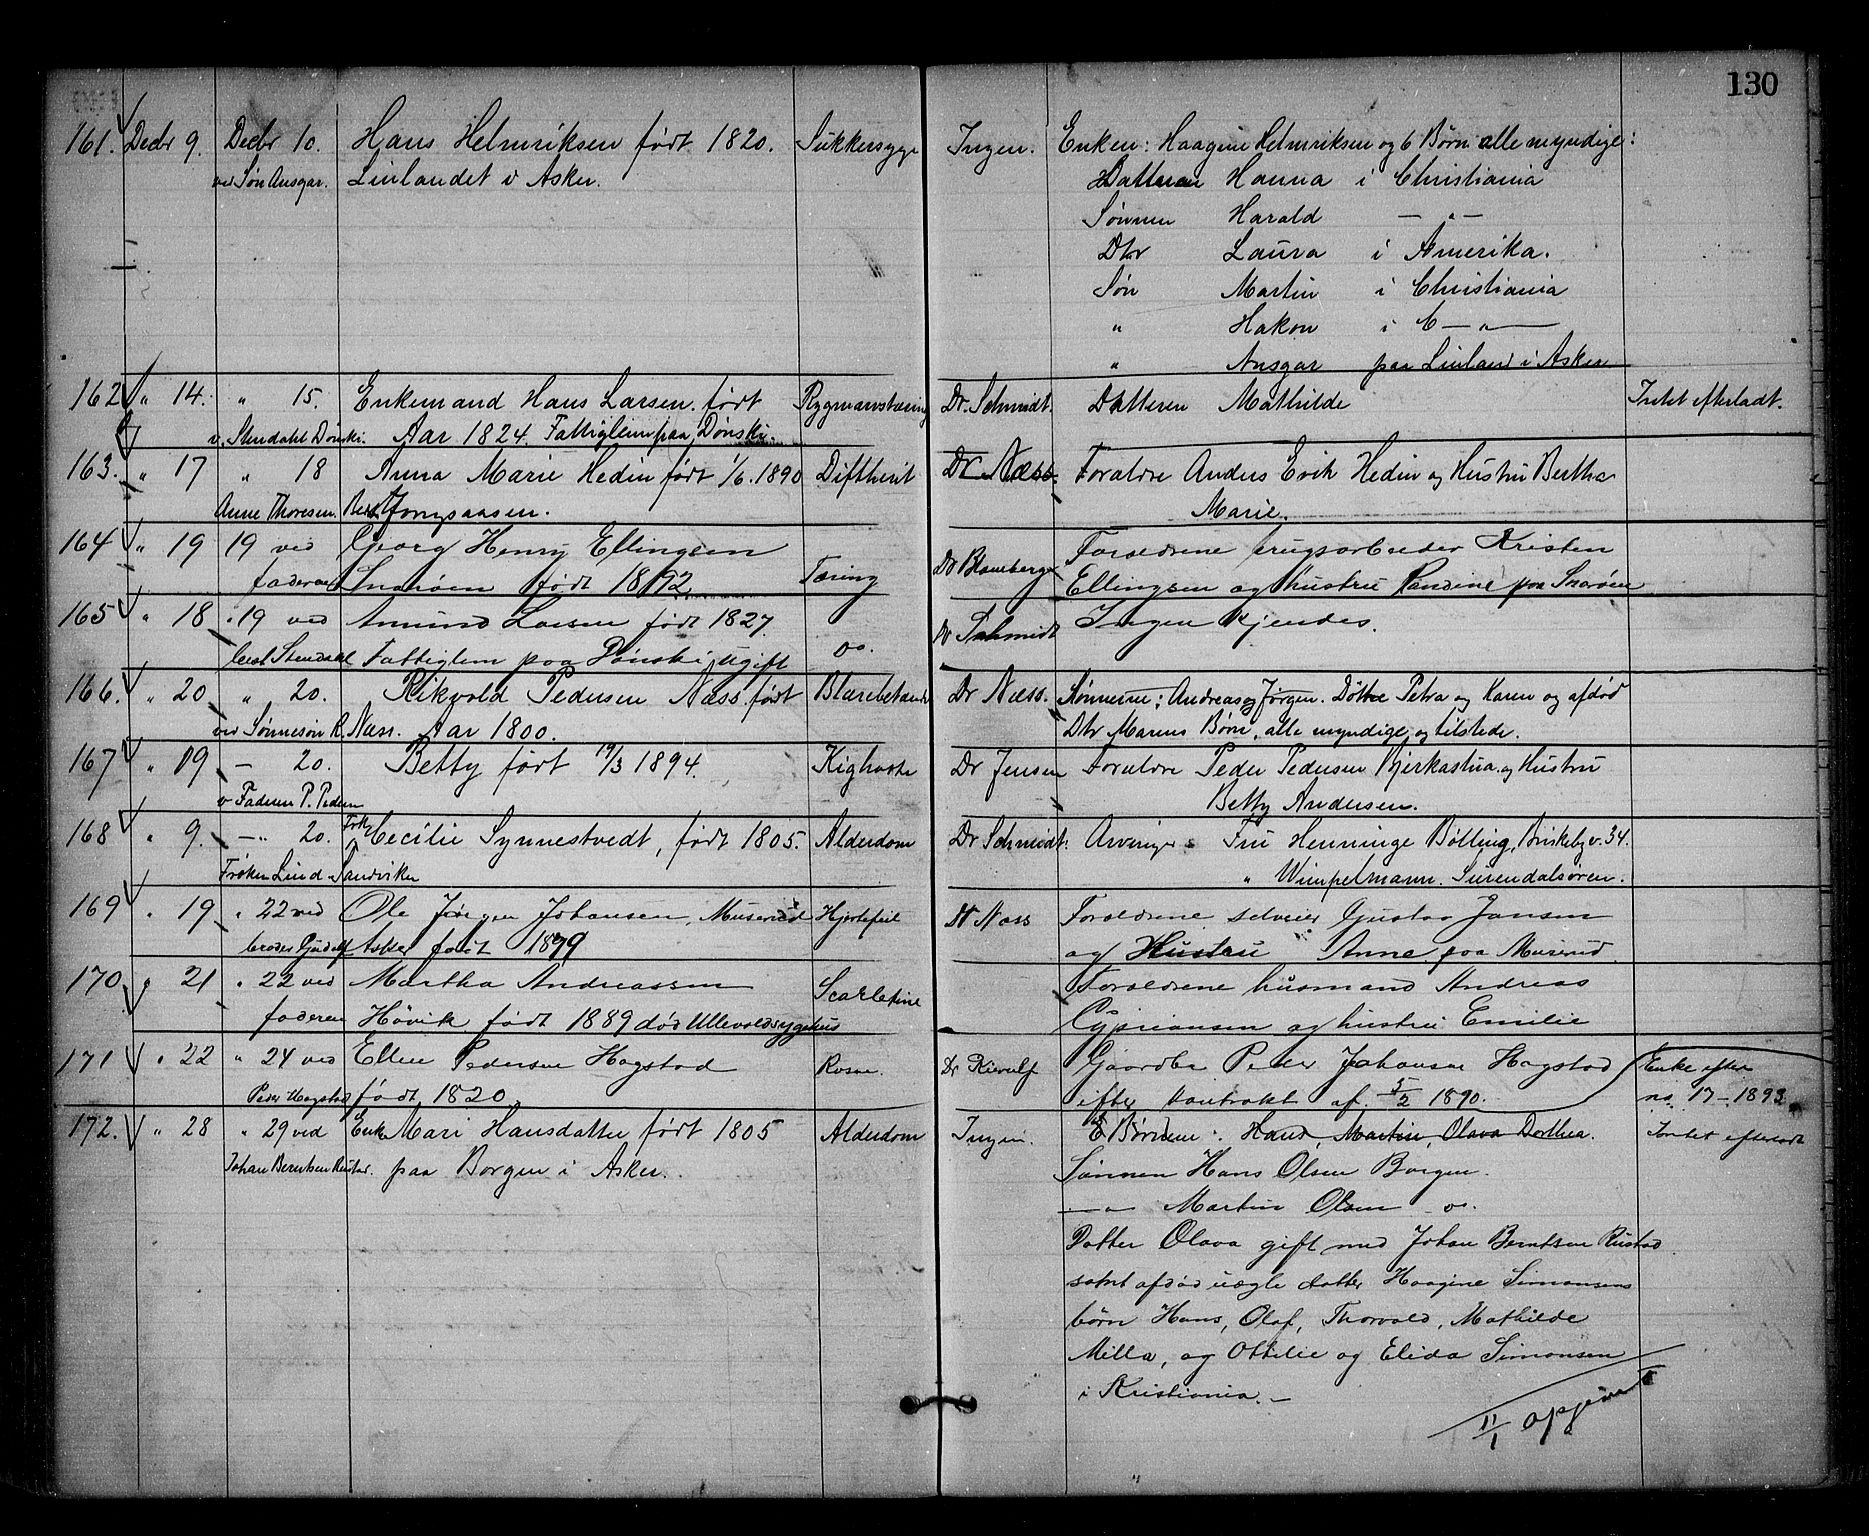 130
161. Decbr 9. Decbr 10. Hans Helmriksen født 1820. Sukkersyge Ingen. Enken: Haagine Helmriksen og 6 Børn alle myndige:
ved Søn Ansgar. Linlandet v Asker. Datteren Hanna i Christiania
Sønnen Harald — " —
Dtr Laura i Amerika.
Søn Martin i Christiania
" Hakon i C — " —
" Ansgar paa Linland i Asker
162 " 14. " 15. Enkemand Hans Larsen. født Rygmarvstæring Dr. Schmidt. Datteren Mathilde Intet efterladt.
v. Stendahl Dønski. Aar 1824. Fattiglem paa Dønski.
163. " 17 " 18 Anna Marie Hedin født 1/6. 1890 Diftherit Dr Næss. Forældre Anders Erik Hedin og Hustru Bertha
Anne Thoresen. Marie.
164 " 19 19 ved Georg Henry Ellingsen Tæring Dr Forældrene brugsarbeider Kristen
faderen Snarøen født 1892 Ellingsen og hustru Pandine paa Snarøen
165 " 18 " 19 ved Amund Larsen født 1827. do. Dr Schmidt Ingen kjendes.
best Stendahl Fattiglem paa Dønski, ugift
166. " 20 " 20. Rikvold Pedersen Næss født Blærebetænd Dr Næss. Sønnerne: Andreas og Jørgen. Døttre Petra og Karen og afdød
ved Sønnesøn R. Næss. Aar 1800. Dtr Marens Børn, alle myndige og tilstede.
167 " 19 — 20. Betty født 19/3 1894. Kighoste Dr Jensen Forældre Peder Pedersen Bjerkastua og Hustru
v Faderen P. Pedersen Betty Andersen.
168 " 9. — " 20. Frk Cecilie Synnestvedt, født 1805. Alderdom Dr Schmidt. Arvinger: Fru Henninge Bølling, Briskebyv. 34.
Frøken Lind Sandviken " Wimpelmann. Surendalsøren.
169 " 19 " 22 ved Ole Jørgen Johansen, Muserud Hjertefeil Dr Næss Forældrene selveier Gustav Jansen
broder Gudolf Asker født 1879 og Hustru Anne paa Muserud
170. " 21 " 22 ved Martha Andreassen Scarlatine Forældrene husmand Andreas
faderen Høvik født 1889 død Ullevold sygehus Cyprianssen og hustru Emilie
171. " 22 " 24 ved Ellen Pedersen Hogstad Rosen. Dr Kierulf Gaardbr Peder Johansen Hogstad Enke efter
Peder Hogstad født 1820 efter kontrakt af 5/2 1890. no. 17 - 1893
172. " 28 " 29 ved Enke Mari Hansdatter født 1805 Alderdom Ingen. Børnene: Hans, Martin Olava Dorthea. Intet efterladt
Johan Berntsen Rustad. paa Borgen i Asker. Sønnen Hans Olsen Borgen.
— " — Martin Olsen do.
Datter Olava gift med Johan Berntsen Rustad
samt afdød uægte datter Haagine Simonsens
børn Hans, Olaf, Thorvald, Mathilde
Milla, og Ottilie og Elida Simonsen
i Kristiania. —
11/1 opgjort